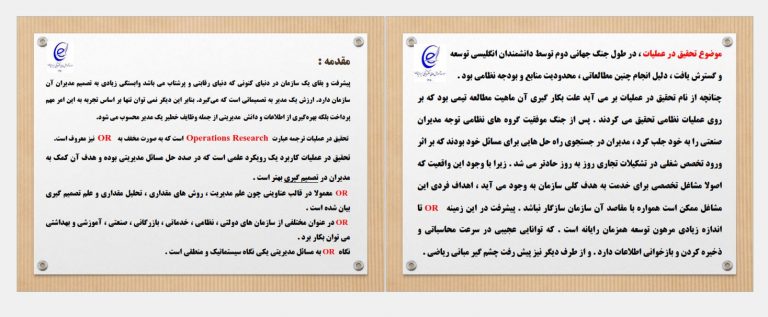 موضوع تحقیق در عملیات ، در طول جنگ جهانی دوم توسط دانشمندان انگلیسی توسعه
و گسترش یافت ، دلیل انجام چنین مطالعاتی ، محدودیت منابع و بودجه نظامی بود .
چنانچه از نام تحقیق در عملیات بر می آید علت بکار گیری آن ماهیت مطالعه تیمی بود که بر
روی عملیات نظامی تحقیق می کردند . پس از جنگ موفقیت گروه های نظامی توجه مدیران
صنعتی را به خود جلب کرد ، مدیران در جستجوی راه حل هایی برای مسائل خود بودند که بر اثر
ورود تخصص شغلی در تشکیلات تجاری روز به روز حادتر می شد . زیرا با وجود این واقعیت که
اصولا مشاغل تخصصی برای خدمت به هدف کلی سازمان به وجود می آید ، اهداف فردی این
مشاغل ممکن است همواره با مقاصد آن سازمان سازگار نباشد . پیشرفت در این زمینه OR تا
اندازه زیادی مرهون توسعه همزمان رایانه است . که توانایی عجیبی در سرعت محاسباتی و
ذخیره کردن و بازخوانی اطلاعات دارد . و از طرف دیگر نیز پیش رفت چشم گیر مبانی ریاضی .
مقدمه :
پیشرفت و بقای یک سازمان در دنیای کنونی که دنیای رقابتی و پرشتاب می باشد وابستگی زیادی به تصمیم مدیران آن
سازمان دارد. ارزش یک مدیر به تصمیماتی است که می‌گیرد. بنابر این دیگر نمی توان تنها بر اساس تجربه به این امر مهم
پرداخت بلکه بهره‌گیری از اطلاعات و دانش مدیریتی از جمله وظایف خطیر یک مدیر محسوب می شود.
تحقیق در عملیات ترجمه عبارت Operations Research است که به صورت مخفف به OR نیز معروف است.
تحقیق در عملیات کاربرد یک رویکرد علمی است که در صدد حل مسائل مدیریتی بوده و هدف آن کمک به
مدیران در تصمیم گیری بهتر است .
OR معمولا در قالب عناوینی چون علم مدیریت ، روش های مقداری ، تحلیل مقداری و علم تصمیم گیری
بیان شده است .
OR در عنوان مختلفی از سازمان های دولتی ، نظامی ، خدماتی ، بازرگانی ، صنعتی ، آموزشی و بهداشتی
می توان بکار برد .
نگاه OR به مسائل مدیریتی یکی نگاه سیستماتیک و منطقی است .